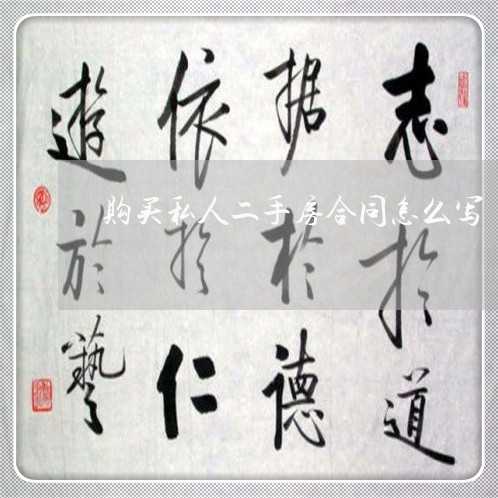 志於道
据於德
依於仁
遊於藝
购买私人二手房合同怎么写